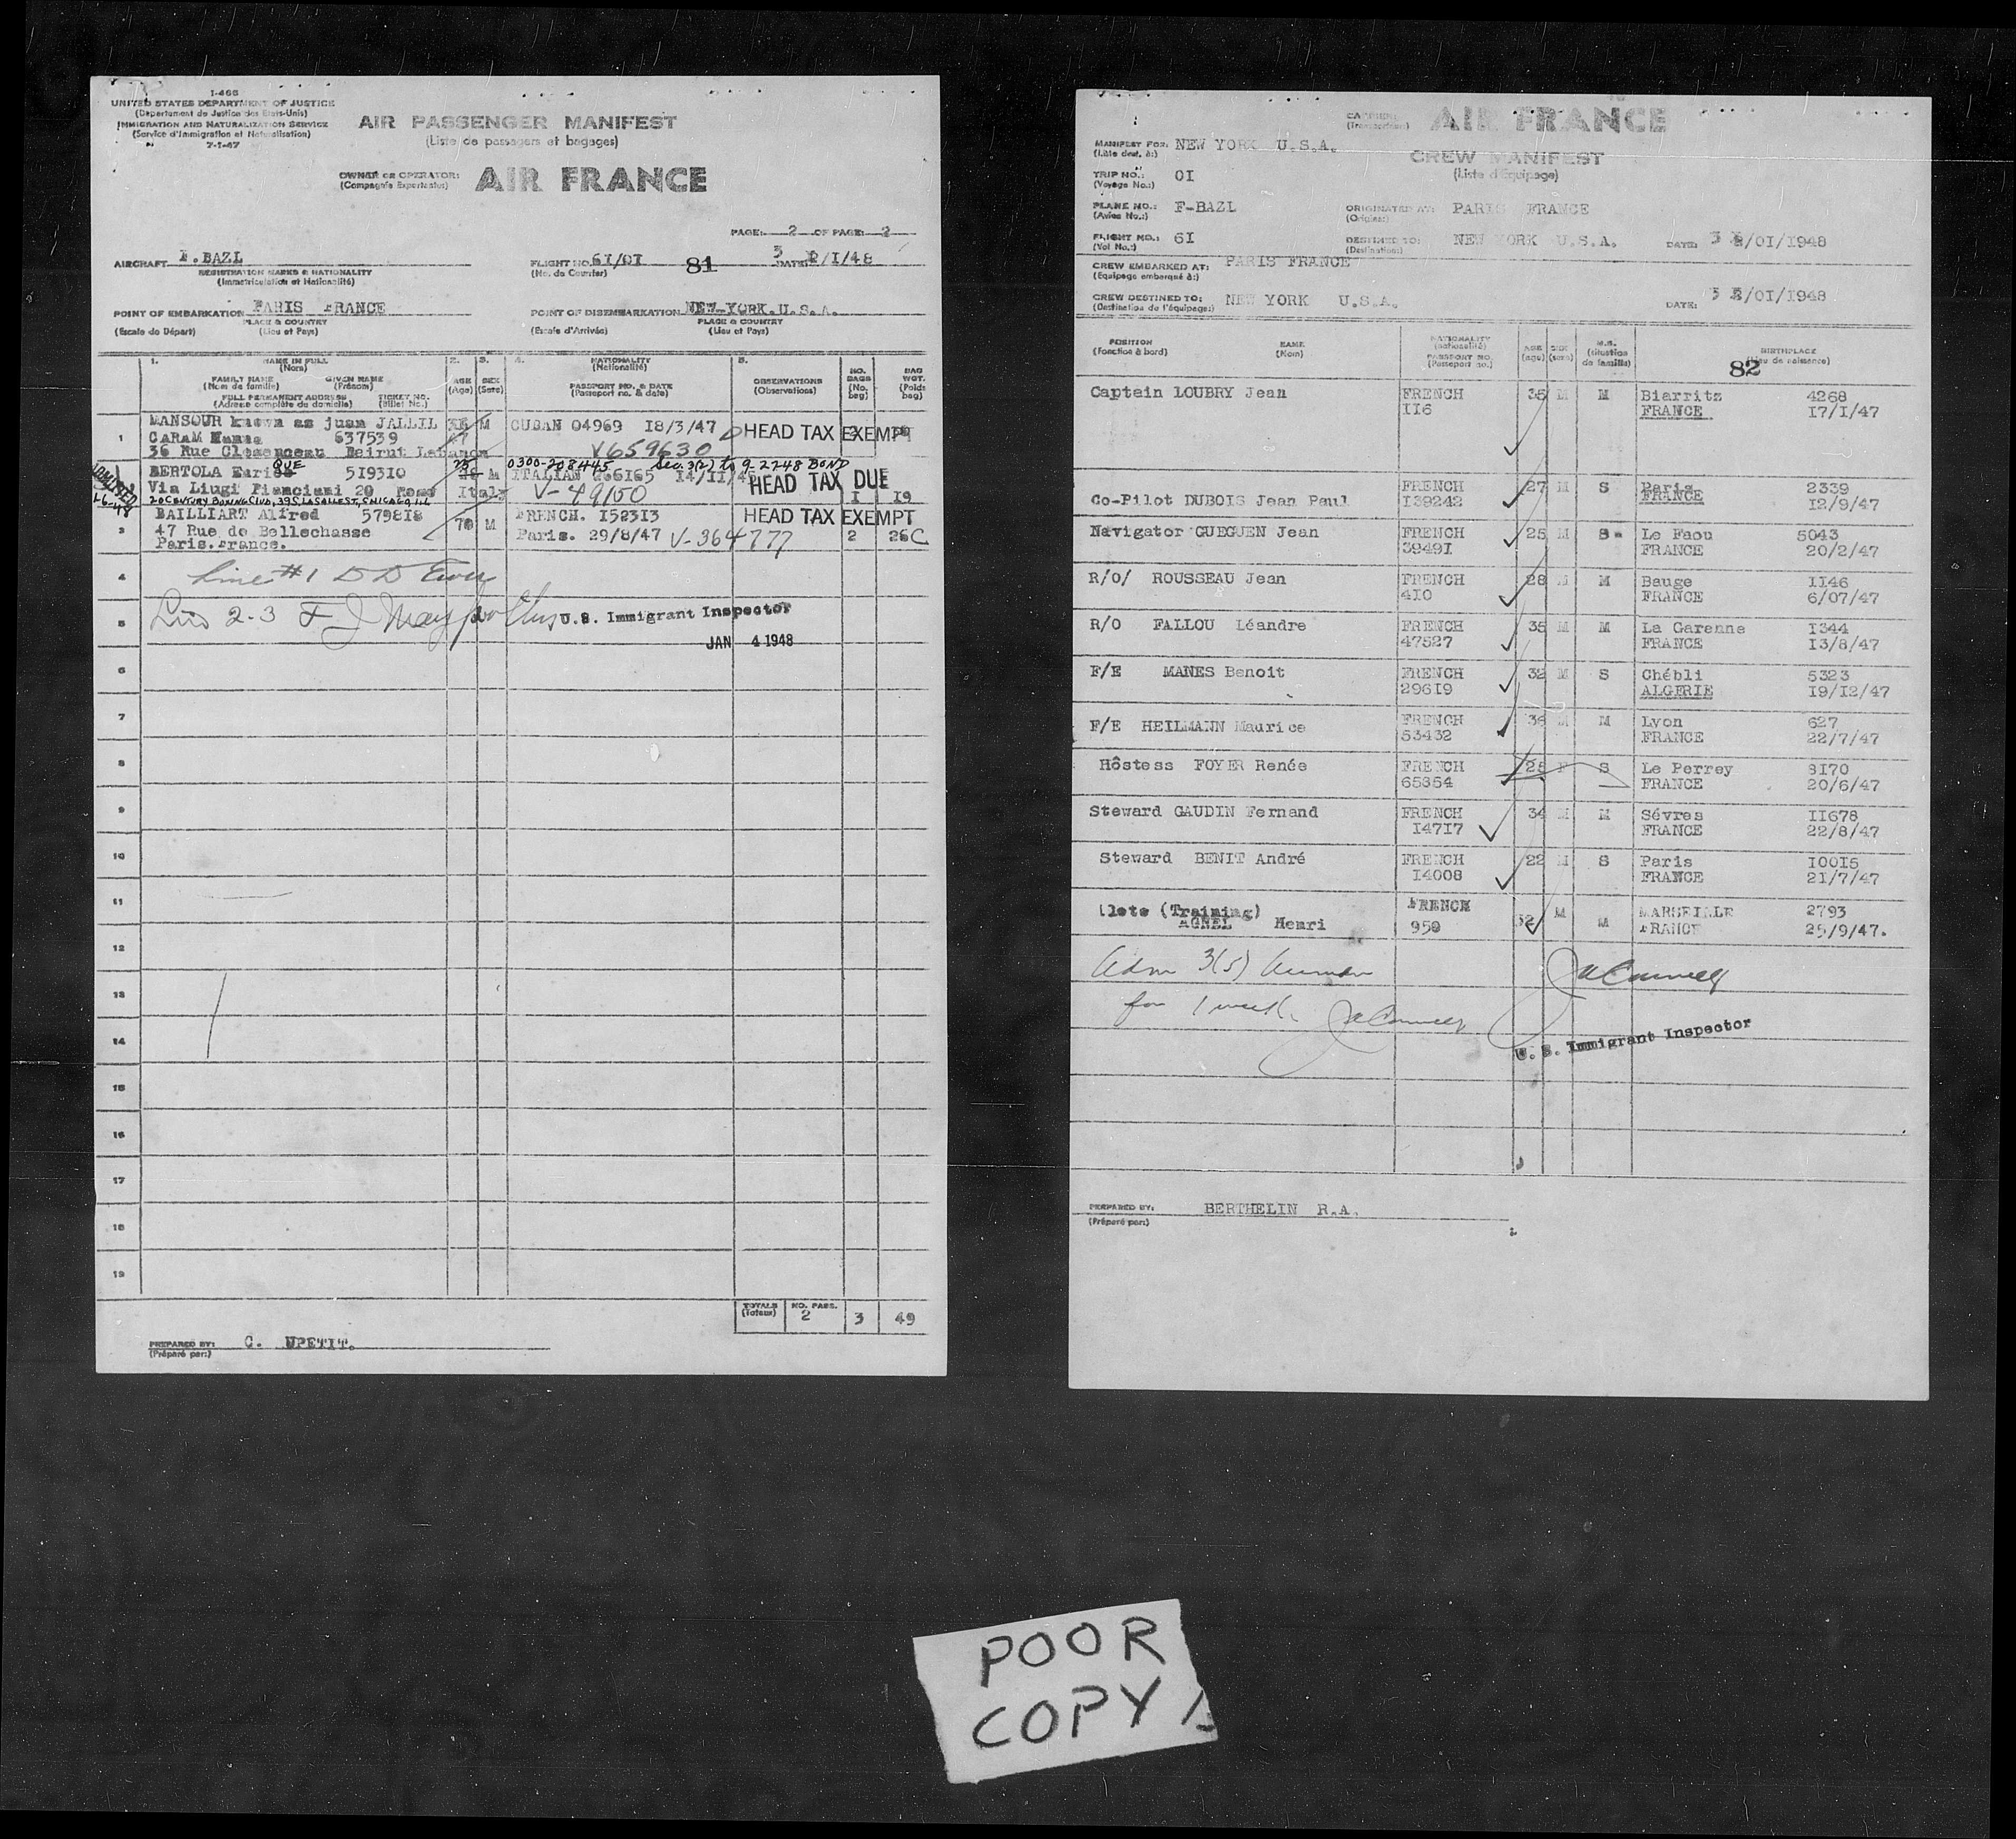 I-466
UNITED STATES DEPARTMENT OF JUSTICE
(Departement de Justice des Etats-Unis)
IMMIGRATION AND NATURALIZATION SERVICE
(Service d'Immigration et Naturalisation)
7-1-47
AIR PASSENGER MANIFEST
(Liste de passagers et bagages)
OWNER OR OPERATOR:
(Compagnie Exportante)
AIR FRANCE
PAGE: 2 OF PAGE: 2
AIRCRAFT F.BAZL
REGISTRATION MARKS & NATIONALITY
(Immatriculation et Nationalité)
FLIGHT NO. 6I/OI 81 3 DATE /I/48
(No. de Courrier)
POINT OF EMBARKATION PARIS FRANCE
PLACE & COUNTRY
(Escale de Départ) (Lieu et Pays)
POINT OF DISEMBARKATION NEW-YORK.U.S.A.
PLACE & COUNTRY
(Escale d'Arrivée) (Lieu et Pays)
1. NAME IN FULL
(Nom)
FAMILY NAME GIVEN NAME
(Nom de famille) (Prénom)
FULL PERMANENT ADDRESS TICKET NO.
(Adresse complète du domicile) (Billet No.)
2. AGE (Age)
3. SEX (Sexe)
4. NATIONALITY
(Nationalité)
PASSPORT NO. & DATE
(Passeport no. & date)
5. OBSERVATIONS
(Observations)
NO. BAGS (No. bag)
BAG WGT. (Poids bag)
1 MANSOUR known as juan JALLIL M CUBAN 04969 I8/3/47 HEAD TAX EXEMPT
CARAM 637539 47 V659630
36 Rue Clemenceau Beirut Lebanon
ADMITTED 1-6-48
QUE 25 0300-208445 Sec. 3(2) to 9-2248 BOND
BERTOLA 5I93I0 M ITALIAN I4/II/4 HEAD TAX DUE
Via Liugi Pianciani 20 Rome Italy V-49150 I I9
20 CENTURY BOXING CLUB, 39 S LASALLE ST, CHICAGO ILL
3 BAILLIART Alfred 5798I8 70 M FRENCH. I523I3 HEAD TAX EXEMPT
47 Rue de Bellechasse Paris. 29/8/47 V-364777 2 26 C
Paris.France.
4 Line #1 D D
5 2-3 F J U.S. Immigrant Inspector
JAN 4 1948
6
7
8
9
10
11
12
13
14
15
16
17
18
19
TOTALS (Totaux) NO. PASS. 2 3 49
PREPARED BY: C. UPETIT.
(Préparé par:)
CARRIER:
(Transporteur)
AIR FRANCE
MANIFEST FOR: NEW YORK U.S.A.
(Liste dest. à:)
CREW MANIFEST
(Liste d'Equipage)
TRIP NO.: OI
(Voyage No.:)
PLANE NO.: F-BAZL
(Avion No.:)
ORIGINATED AT: PARIS FRANCE
(Origine:)
FLIGHT NO.: 6I
(Vol No.:)
DESTINED TO: NEW YORK U.S.A. DATE: 3 /OI/I948
(Destination:)
CREW EMBARKED AT: PARIS FRANCE
(Equipage embarqué à:)
CREW DESTINED TO: NEW YORK U.S.A. DATE: 3 /OI/I948
(Destination de l'équipage:)
POSITION
(Fonction à bord)
NAME
(Nom)
NATIONALITY
(nationalité)
PASSPORT NO.
(Passeport no.)
AGE (age)
SEX (sexe)
M.S. (situation de famille)
BIRTHPLACE
(Lieu de naissance)
82
Captain LOUBRY Jean FRENCH 35 M M Biarritz 4268
II6 FRANCE I7/I/47
Co-Pilot DUBOIS Jean Paul FRENCH 27 M S Paris 2339
I39242 FRANCE I2/9/47
Navigator GUEGUEN Jean FRENCH 25 M S Le Faou 5043
3949I FRANCE 20/2/47
R/O/ ROUSSEAU Jean FRENCH 28 M M Bauge II46
4I0 FRANCE 6/07/47
R/O FALLOU Léandre FRENCH 35 M M La Garenne I344
47527 FRANCE I3/8/47
F/E MANES Benoit FRENCH 32 M S Chébli 5323
296I9 ALGERIE I9/I2/47
F/E HEILMANN Maurice FRENCH 36 M M Lyon 627
53432 FRANCE 22/7/47
Hôstess FOYER Renée FRENCH 25 F S Le Perrey 8I70
65354 FRANCE 20/6/47
Steward GAUDIN Fernand FRENCH 34 M M Sévres II678
I47I7 FRANCE 22/8/47
Steward BENIT André FRENCH 22 M S Paris I00I5
I4008 FRANCE 2I/7/47
(Training) FRENCH M MARSEILLE 2793
AGNEL Henri 959 32 M FRANCE 25/9/47.
Adm 3(5)
for 1 week.
U. S. Immigrant Inspector
PREPARED BY: BERTHELIN R.A.
(Préparé par:)
POOR
COPY